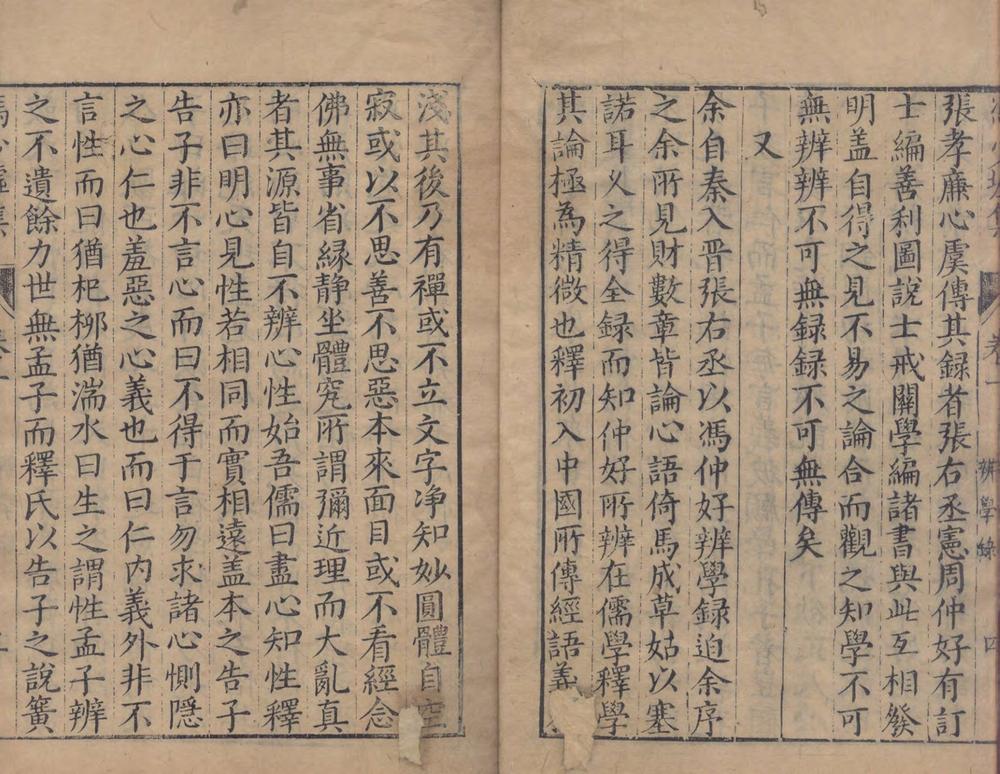 張孝廉心虞傳其録者張右丞憲周仲好有訂
士編善利圖説士戒關學編諸書與此互相發
明盖自得之見不易之論合而觀之知學不可
無辨辨不可無録録不可無傳矣
又
余自秦入晋張右丞以馮仲好辨學録迫余序
之余所見財數章皆論心語倚馬成草姑以塞
諾耳乂之得全録而知仲好所辨在儒學釋學
其論極為精微也釋初入中國所傳經語義
淺其後乃有禪或不立文字净知妙圓體自空
寂或以不思善不思惡本來面目或不看經念
佛無事省縁静坐體究所謂彌近理而大亂真
者其源皆自不辨心性始吾儒曰盡心知性釋
亦曰明心見性若相同而實相遠盖本之告子
告子非不言心而曰不得于言勿求諸心惻隠
之心仁也羞惡之心義也而曰仁内義外非不
言性而曰猶杞柳猶湍水曰生之謂性孟子辨
之不遺餘力世無孟子而釋氏以告子之説簧
卷一
辨學録
四